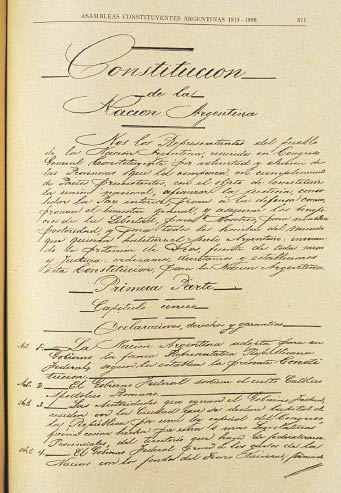 ASAMBLEAS CONSTITUYENTES ARGENTINAS 1813 - 1898 871
Constitucion
de la
Nacion Argentina
Nos los Representantes del pueblo
de la Nacion Argentina, reunidos en Congreso
General Constituyente por voluntad y eleccion de
las Provincias que la componen, en cumplimiento
de Pactos preexistentes, con el objeto de constituir
la union nacional, afianzar la Justicia, conso
lidar la Paz interior, á la defensa comun,
promover el bienestar general, y asegurar los benefi
cios de la Libertad, para Nosotros, para nuestra
posteridad, y para todos los hombres del mundo
que quieran habitar el Suelo Argentino: invocan
do la proteccion de Dios, fuente de toda razon
y Justicia: ordenamos, decretamos y establecemos
esta Constitucion, para la Nacion Argentina.
Primera Parte
Capítulo único
Declaraciones, derechos y garantias
Art. 1 La Nacion Argentina adopta para su
Gobierno la forma Representativa Republicana
Federal, segun la establece la presente Consti
tucion.
Art. 2 El Gobierno Federal sostiene el culto Católico
Apostólico Romano.
Art. 3 Las autoridades que ejercen el Gobierno Federal,
residen en la Ciudad que se declare Capital de
la República por una ley especial del Congreso,
previa cesion hecha por una ó mas Legislaturas
Provinciales, del territorio que haya de federalizarse.
Art. 4 El Gobierno Federal provee á los gastos de la
Nacion con los fondos del Tesoro Nacional, formado